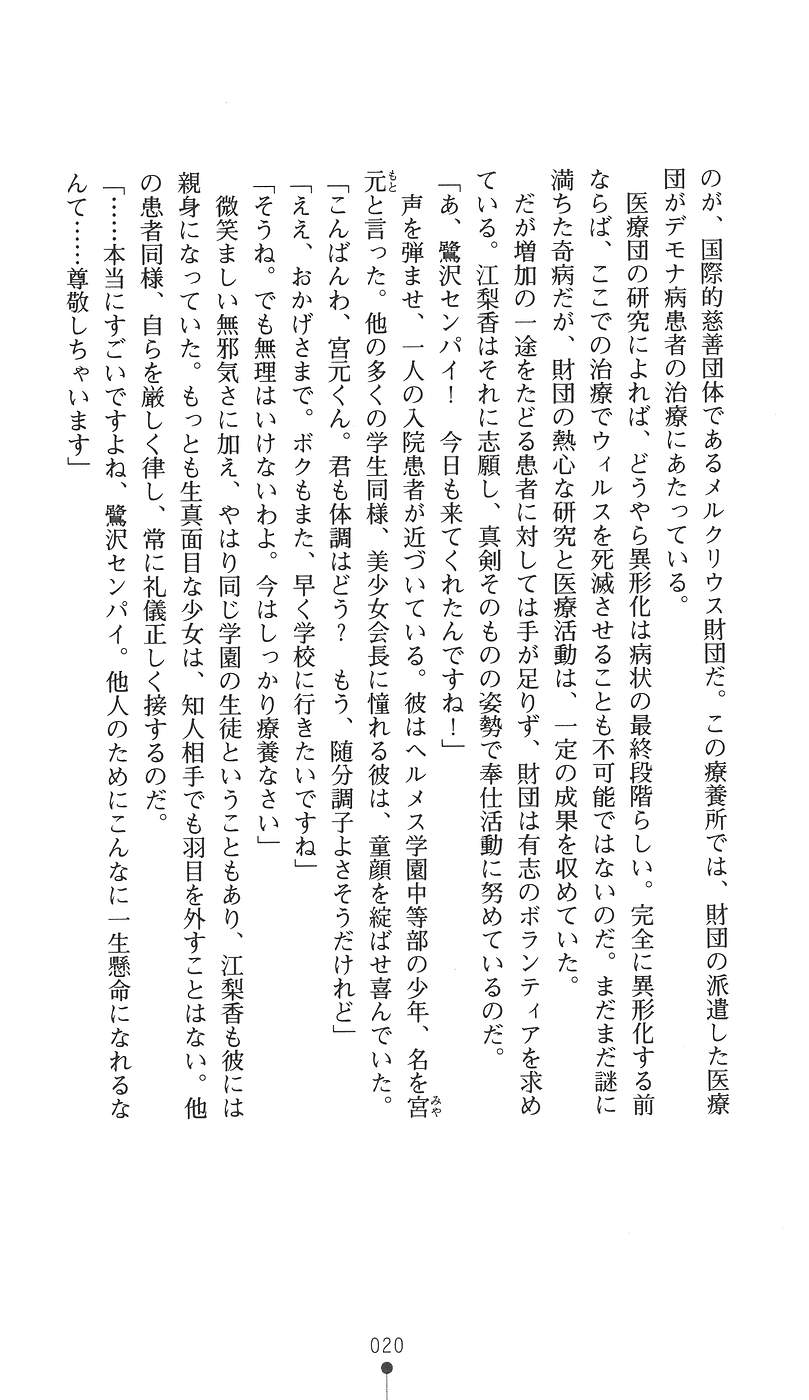 のが、国際的慈善団体であるメルクリウス財団だ。この療養所では、財団の派遣した医療
団がデモナ病患者の治療にあたっている。
　医療団の研究によれば、どうやら異形化は病状の最終段階らしい。完全に異形化する前
ならば、ここでの治療でウィルスを死滅させることも不可能ではないのだ。まだまだ謎に
満ちた奇病だが、財団の熱心な研究と医療活動は、一定の成果を収めていた。
　だが増加の一途をたどる患者に対しては手が足りず、財団は有志のボランティアを求め
ている。江梨香はそれに志願し、真剣そのものの姿勢で奉仕活動に努めているのだ。
「あ、鷺沢センパイ！　今日も来てくれたんですね！」
　声を弾ませ、一人の入院患者が近づいている。彼はヘルメス学園中等部の少年、名を宮みや
元もとと言った。他の多くの学生同様、美少女会長に憧れる彼は、童顔を綻ばせ喜んでいた。
「こんばんわ、宮元くん。君も体調はどう？　もう、随分調子よさそうだけれど」
「ええ、おかげさまで。ボクもまた、早く学校に行きたいですね」
「そうね。でも無理はいけないわよ。今はしっかり療養なさい」
　微笑ましい無邪気さに加え、やはり同じ学園の生徒ということもあり、江梨香も彼には
親身になっていた。もっとも生真面目な少女は、知人相手でも羽目を外すことはない。他
の患者同様、自らを厳しく律し、常に礼儀正しく接するのだ。
「……本当にすごいですよね、鷺沢センパイ。他人のためにこんなに一生懸命になれるな
んて……尊敬しちゃいます」
020